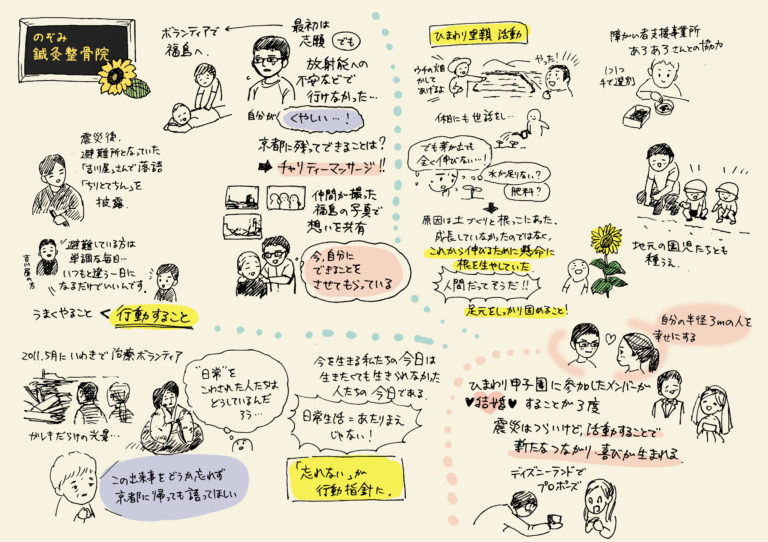 のぞみ
鍼灸整骨院
ボランティアで
福島へ.
最初は
志願 でも
放射能への
不安などで
行けなかった…
自分が くやしい…!
京都に残ってできることは?
➡ チャリティーマッサージ!!
仲間が撮った
福島の写真で
想いを共有
今、自分に
できることを
させてもらっている
震災後、
避難所となっていた
「吉川屋」さんで落語
「ちりとてちん」を
披露.
吉川屋の方
避難している方は
単調な毎日…
いつもと違う一日に
なるだけでいいんです。
うまくやること < 行動すること
2011.5月にいわきで治療ボランティア
ガレキだらけの光景…
"日常"を
こわされた人たちは
どうしているんだ
ろう…
この出来事をどうか忘れず
京都に帰っても語ってほしい
今を生きる私たちの今日は
生きたくても生きられなかった
人たちの今日である.
日常生活=あたりまえ
じゃない!
「忘れない」が
行動指針に.
ひまわり里親 活動
ウチの畑
かして
あげるよ
やった!
休日にも世話をし…
でも芽が出ても
全く伸びない…!
水が足りない?
肥料?
原因は土づくりと根っこにあった.
成長していなかったのではなく、
これから伸びるために懸命に
根を生やしていた
人間だってそうだ!!
足元をしっかり固めること!
障がい者支援事業所
あろあろさんとの協力
1つ1つ
手で選別
地元の園児たちとも
種うえ
自分の半径3mの人を
幸せにする
ひまわり甲子園に参加したメンバーが
♥結婚♥ することが3度
震災はつらいけど、活動することで
新たなつながり・喜びが生まれる
ディズニーランドで
プロポーズ